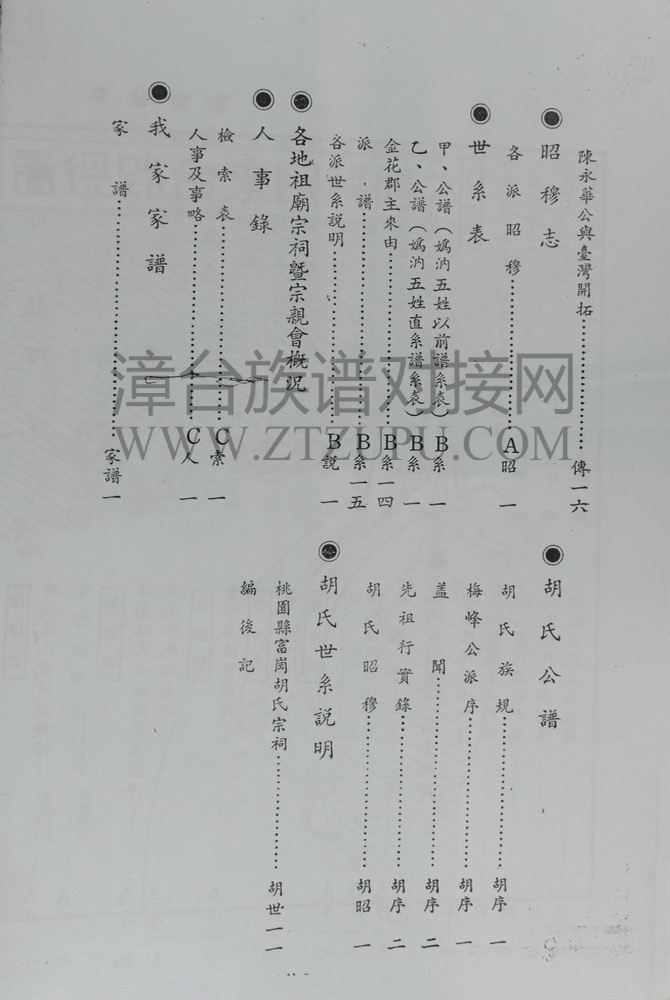 陳永華公與臺灣開拓……傳一六
◉昭穆志
各派昭穆……A昭一
◉世系表
甲、公譜（媯汭五姓以前譜系表）B系一
乙、公譜（媯汭五姓直系譜系表）B系一
金花郡主來由……B系一四
派譜……B系一五
各派世系説明……B説一
◉各地祖廟宗祠暨宗親會概況
◉人事錄
檢索表……C索一
人事及事略……C人一
◉我家家譜
家譜……家譜一
◉胡氏公譜
胡氏族規……胡序一
梅峰公派序……胡序一
蓋聞……胡序二
先祖行實錄……胡序二
胡氏昭穆……胡昭一
◉胡氏世系説明
桃園縣富崗胡氏宗祠……胡世一一
編後記
漳台族谱对接网
WWW.ZTZUPU.COM